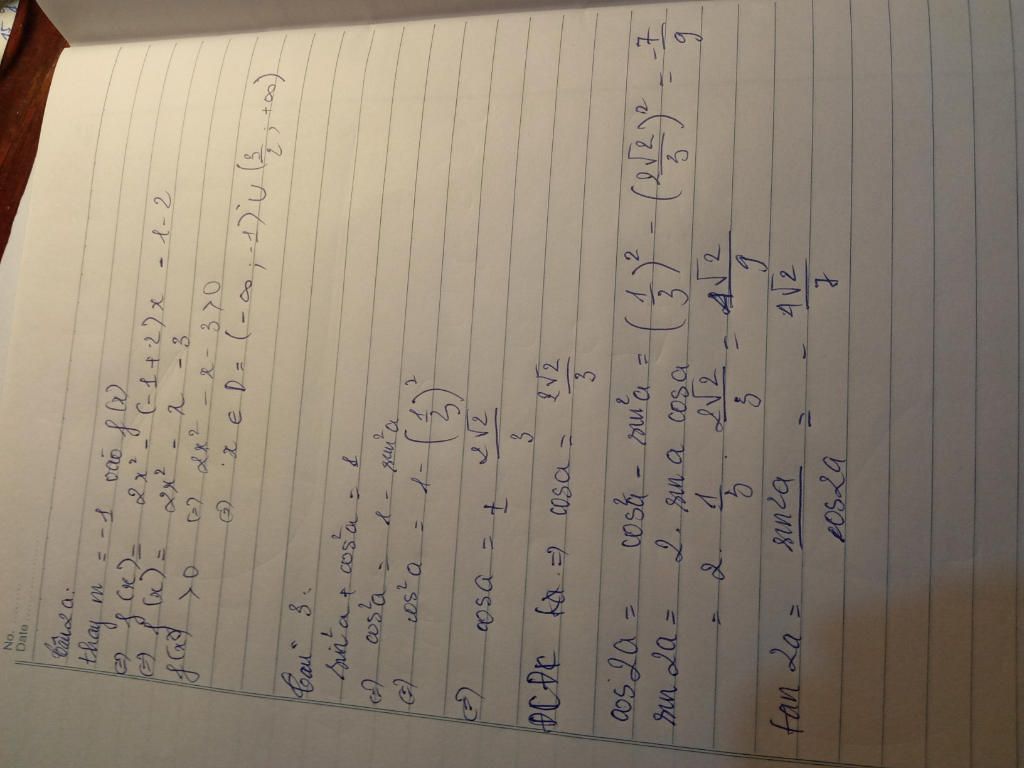 No.
Date
Câu 2a:
thay m = -1 vào f(x)
=) f(x) = 2x² - (-1+2)x - 1-2
=) f(x) = 2x² - x - 3
f(x) > 0 (=) 2x² - x - 3 > 0
(=) x ∈ D = (-∞; -1) ∪ (3/2; +∞)
Câu 3:
sin²a + cos²a = 1
(=) cos²a = 1 - sin²a
(=) cos²a = 1 - (1/3)²
(=) cosa = ± 2√2/3
ĐCĐK => cosa = 2√2/3
cos2a = cos²a - sin²a = (1/3)² - (2√2/3)² = -7/9
sin2a = 2. sina cosa
= 2. 1/3 . 2√2/3 = 4√2/9
tan2a = sin2a/cos2a = - 4√2/7